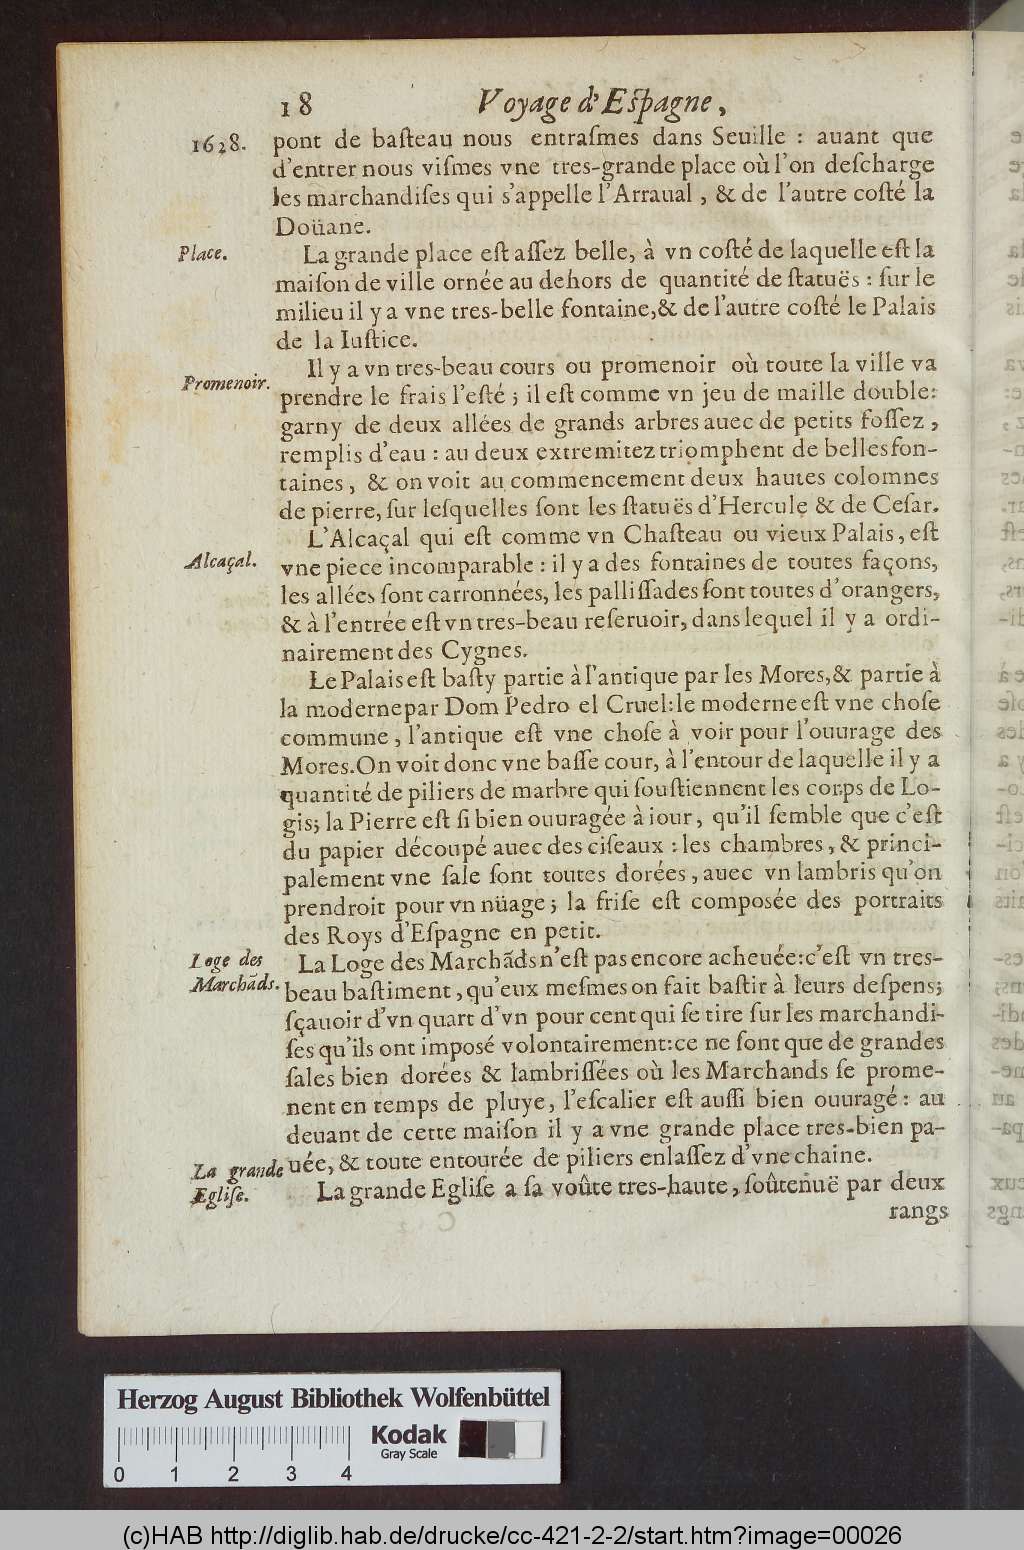 18 Voyage d'Eſpagne,
1628. pont de baſteau nous entraſmes dans Seuille : auant que
d'entrer nous viſmes vne tres-grande place où l'on deſcharge
les marchandiſes qui s'appelle l'Arraual, & de l'autre coſté la
Doüane.
Place. La grande place eſt aſſez belle, à vn coſté de laquelle eſt la
maiſon de ville ornée au dehors de quantité de ſtatuës : ſur le
milieu il y a vne tres-belle fontaine, & de l'autre coſté le Palais
de la Iuſtice.
Promenoir. Il y a vn tres-beau cours ou promenoir où toute la ville va
prendre le frais l'eſté ; il eſt comme vn jeu de maille double:
garny de deux allées de grands arbres auec de petits foſſez,
remplis d'eau : au deux extremitez triomphent de belles fon-
taines, & on voit au commencement deux hautes colomnes
de pierre, ſur leſquelles ſont les ſtatuës d'Hercule & de Ceſar.
Alcaçal. L'Alcaçal qui eſt comme vn Chaſteau ou vieux Palais, eſt
vne piece incomparable : il y a des fontaines de toutes façons,
les allées ſont carronnées, les palliſſades ſont toutes d'orangers,
& à l'entrée eſt vn tres-beau reſeruoir, dans lequel il y a ordi-
nairement des Cygnes.
Le Palais eſt baſty partie à l'antique par les Mores, & partie à
la moderne par Dom Pedro el Cruel: le moderne eſt vne choſe
commune, l'antique eſt vne choſe à voir pour l'ouurage des
Mores. On voit donc vne baſſe cour, à l'entour de laquelle il y a
quantité de piliers de marbre qui ſouſtiennent les corps de Lo-
gis; la Pierre eſt ſi bien ouuragée à iour, qu'il ſemble que c'eſt
du papier découpé auec des ciſeaux : les chambres, & princi-
palement vne ſale ſont toutes dorées, auec vn lambris qu'on
prendroit pour vn nüage; la friſe eſt compoſée des portraits
des Roys d'Eſpagne en petit.
Loge des Marchãds. La Loge des Marchãds n'eſt pas encore acheuée: c'eſt vn tres-
beau baſtiment, qu'eux meſmes on fait baſtir à leurs deſpens;
ſçauoir d'vn quart d'vn pour cent qui ſe tire ſur les marchandi-
ſes qu'ils ont impoſé volontairement: ce ne ſont que de grandes
ſales bien dorées & lambriſſées où les Marchands ſe prome-
nent en temps de pluye, l'eſcalier eſt auſſi bien ouuragé : au
deuant de cette maiſon il y a vne grande place tres-bien pa-
uée, & toute entourée de piliers enlaſſez d'vne chaine.
La grande Egliſe. La grande Egliſe a ſa voûte tres-haute, ſoûtenuë par deux
rangs
Herzog August Bibliothek Wolfenbüttel
Kodak
Gray Scale
0 1 2 3 4
(c)HAB http://diglib.hab.de/drucke/cc-421-2-2/start.htm?image=00026